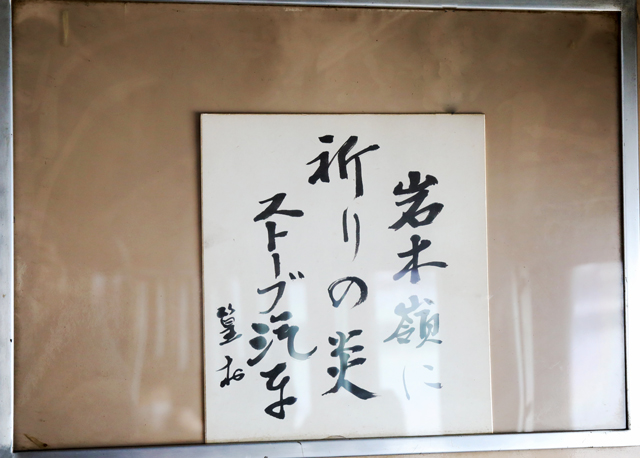 岩木嶺に
祈りの炎
ストーブ汽車